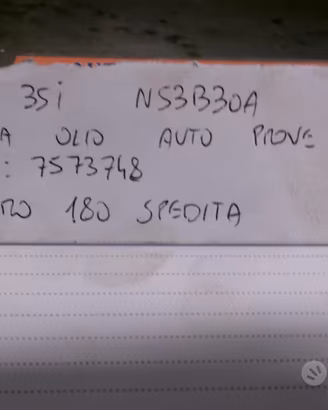 35i N53B30A
A OLIO AUTO PROVE
: 7573748
RO 180 SPEDITA